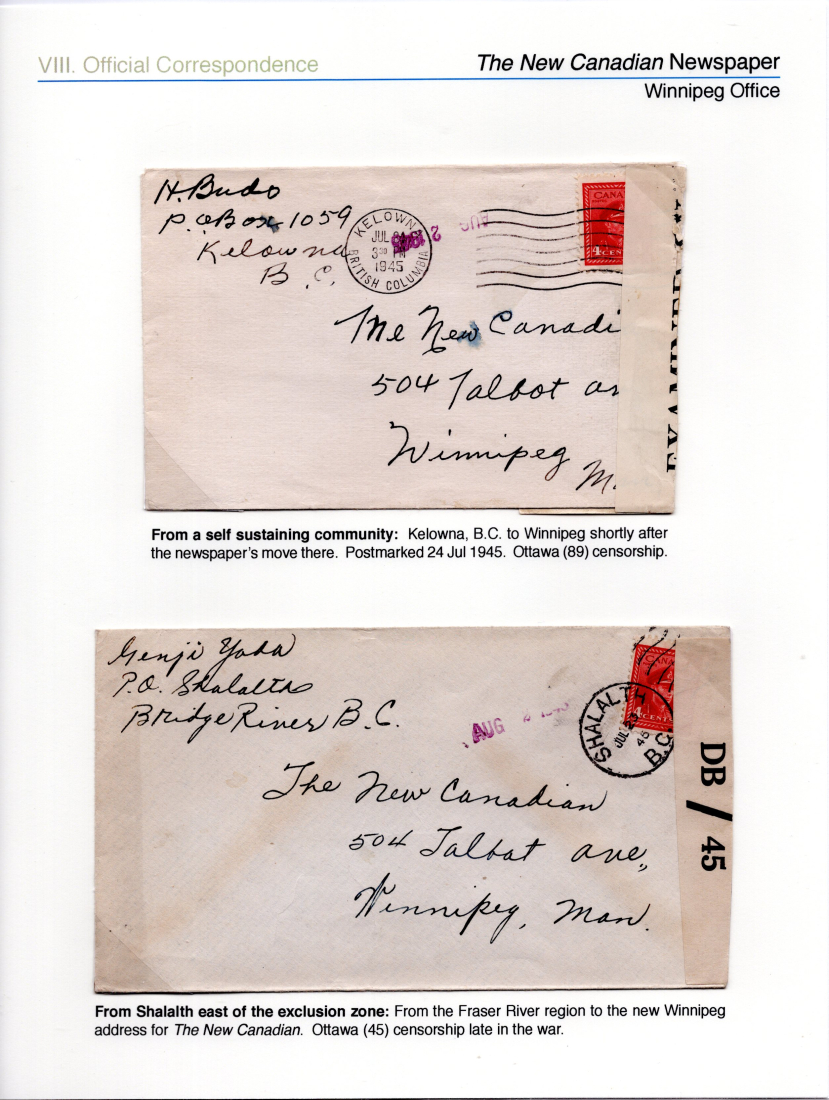 VIII. Official Correspondence
The New Canadian Newspaper
Winnipeg Office
H. Budo
P.O Box 1059
Kelowna
B.C.
KELOWNA
JUL 24
3 30 PM
1945
BRITISH COLUMBIA
AUG 2
CANA
4 CEN
The New Canadi
504 Talbot av
Winnipeg
M.
EXAMINED
From a self sustaining community: Kelowna, B.C. to Winnipeg shortly after
the newspaper's move there. Postmarked 24 Jul 1945. Ottawa (89) censorship.
Genji Yada
P.O. Shalalth
Bridge River B.C.
AUG 2 1945
CANA
4 CENTS
SHALALTH
JUL 23
45
B.C.
DB / 45
The New Canadian
504 Talbot ave,
Winnipeg, Man.
From Shalalth east of the exclusion zone: From the Fraser River region to the new Winnipeg
address for The New Canadian. Ottawa (45) censorship late in the war.